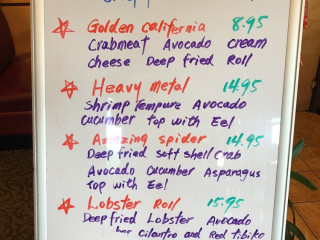 Golden california 8.95
Crabmeat Avocado cream
cheese Deep fried Roll
Heavy metal 14.95
Shrimp Tempura Avocado
cucumber Top with Eel
Amazing spider 14.95
Deep fried soft shell crab
Avocado Cucumber Asparagus
Top with Eel
Lobster Roll 15.95
Deep fried Lobster Avocado
cilantro and Red Tibiko